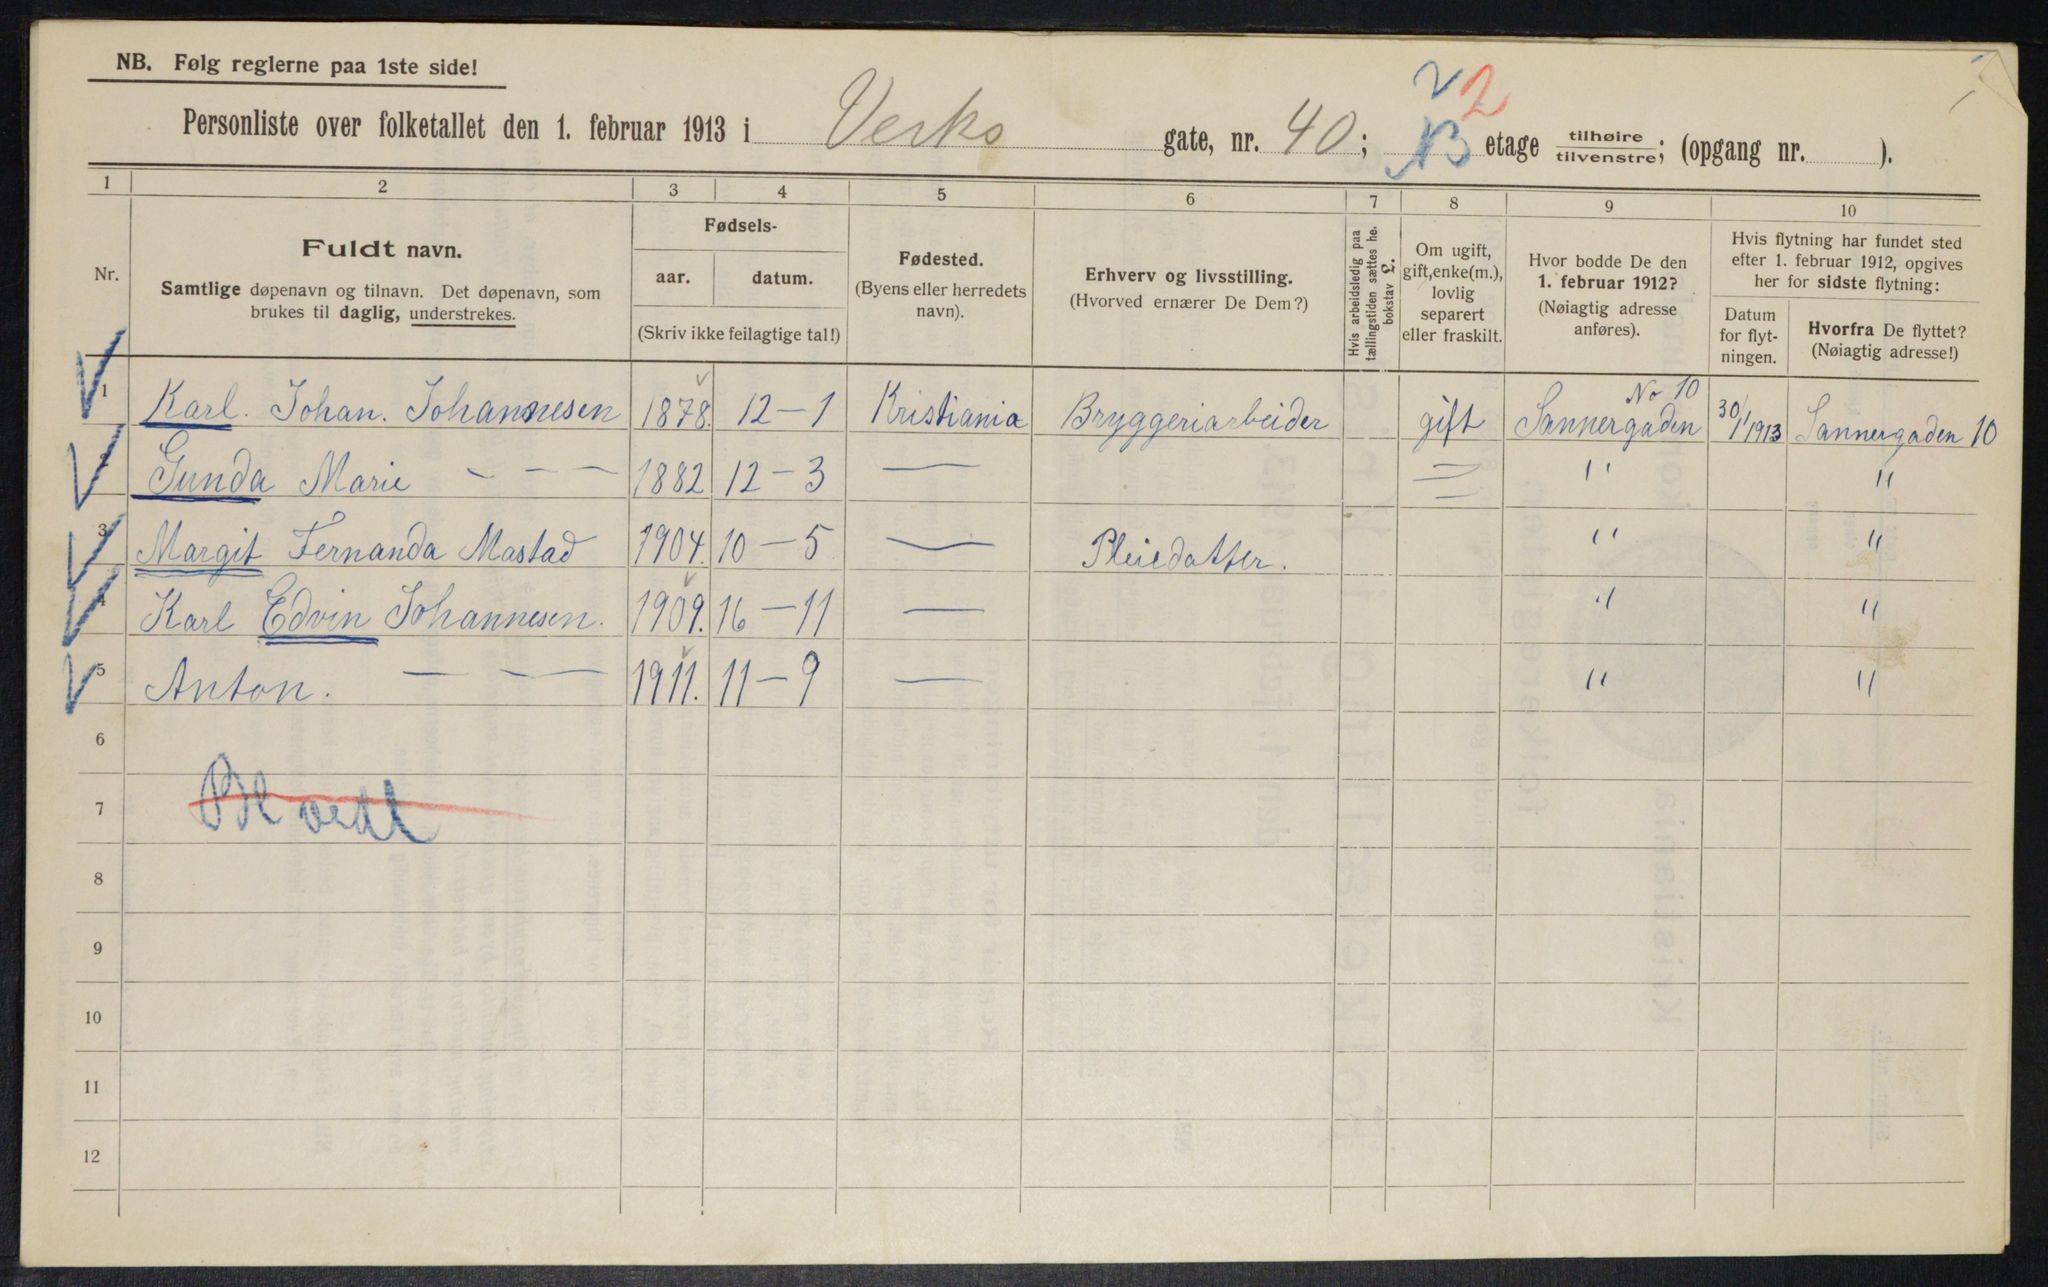 NB. Følg reglerne paa 1ste side!
2 2
Personliste over folketallet den 1. februar 1913 i Verks gate, nr. 40; B etage tilhøire/tilvenstre; (opgang nr. ).
1 2 3 4 5 6 7 8 9 10
Nr.
Fuldt navn.
Samtlige døpenavn og tilnavn. Det døpenavn, som
brukes til daglig, understrekes.
Fødsels-
aar. datum.
(Skriv ikke feilagtige tal!)
Fødested.
(Byens eller herredets
navn).
Erhverv og livsstilling.
(Hvorved ernærer De Dem?)
Hvis arbeidsledig paa
tællingstiden sættes he.
bokstav L.
Om ugift,
gift, enke(m.),
lovlig
separert
eller fraskilt.
Hvor bodde De den
1. februar 1912?
(Nøiagtig adresse
anføres).
Hvis flytning har fundet sted
efter 1. februar 1912, opgives
her for sidste flytning:
Datum
for flyt-
ningen.
Hvorfra De flyttet?
(Nøiagtig adresse!)
1 Karl. Johan. Johannesen 1878. 12-1 Kristiania Bryggeriarbeider gift Sannergaden No 10 30/1 1913 Sannergaden 10
Gunda Marie — — — 1882 12-3 — = " "
3 Margit Fernanda Mastad 1904. 10-5 — Pleiedatter. " "
4 Karl Edvin Johannesen. 1909. 16-11 — " "
5 Anton. — — — 1911. 11-9 — " "
6
7
8
9
10
11
12